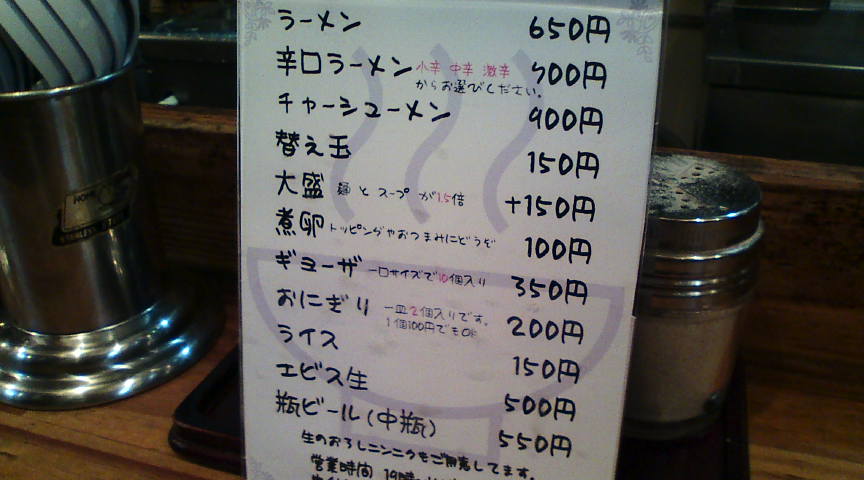 ラーメン 650円
辛口ラーメン 小辛 中辛 激辛 からお選びください。 700円
チャーシューメン 900円
替え玉 150円
大盛 麺とスープが1.5倍 +150円
煮卵 トッピングやおつまみにどうぞ 100円
ギョーザ 一口サイズで10個入り 350円
おにぎり 一皿2個入りです。 1個100円でもOK 200円
ライス 150円
エビス生 500円
瓶ビール(中瓶) 550円
生のおろしニンニクもご用意してます。
営業時間 19時